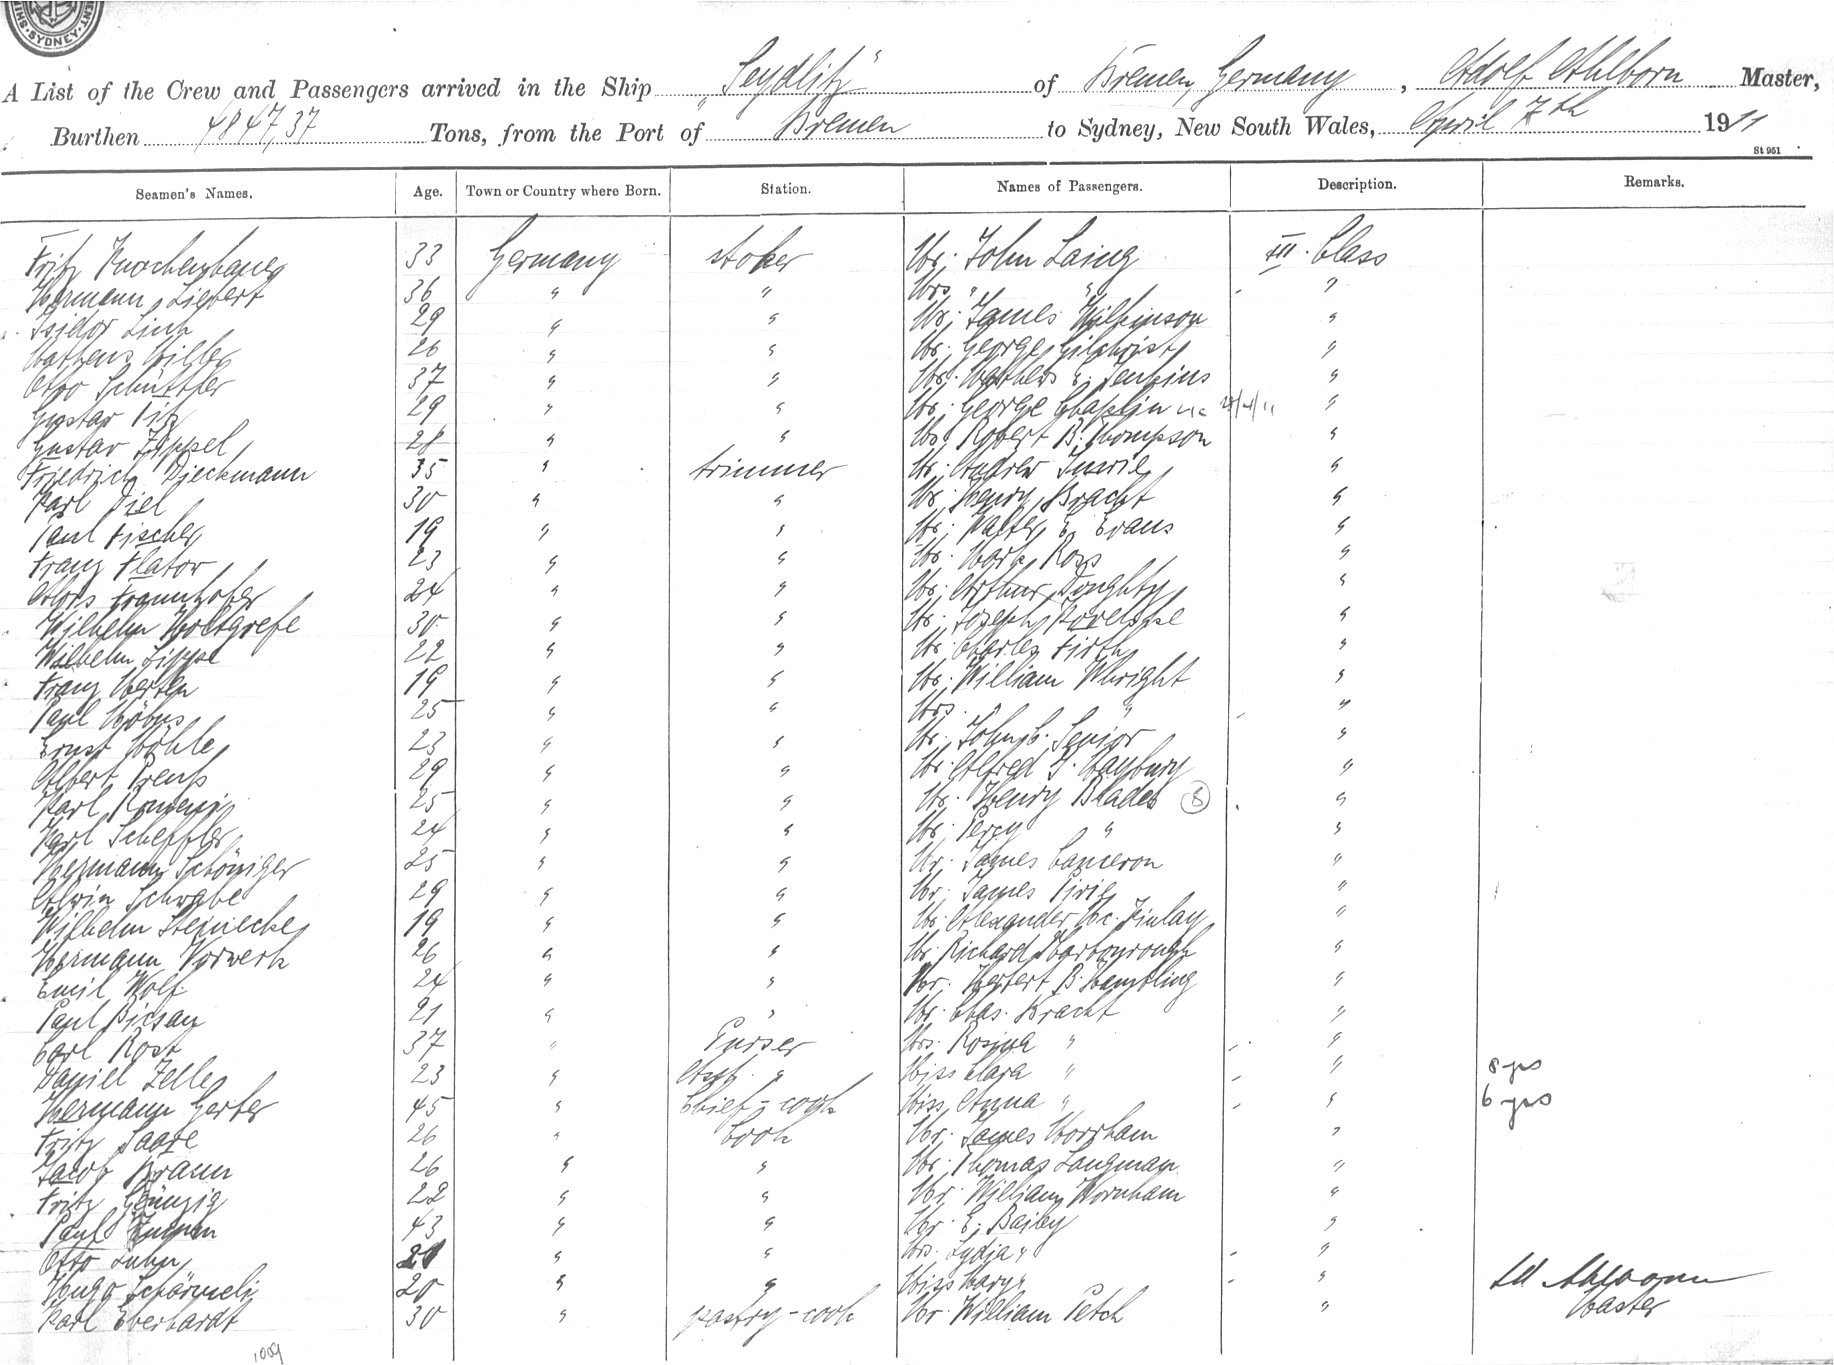 SYDNEY
A List of the Crew and Passengers arrived in the Ship "Seydlitz" of Bremen, Germany, Adolf Ahlborn Master,
Burthen 4847,37 Tons, from the Port of Bremen to Sydney, New South Wales, April 7th 1911
St 951
Seamen's Names. Age. Town or Country where Born. Station. Names of Passengers. Description. Remarks.
Fritz Knochenhauer 33 Germany stoker Mr. John Laing III. Class
Hermann Liebert 36 " " Mrs. " " "
Isidor Link 29 " " Mr. James Wilkinson "
Mathens Miller 26 " " Mr. George Gilchrist "
Otto Schüttler 37 " " Mr. Mathews E. Jenkins "
Gustav Titz 29 " " Mr. George Chaplin "
Gustav Zappel 28 " " Mr. Robert B. Thompson "
Friedrich Dieckmann 35 " trimmer Mr. Andrew "
Karl Diel 30 " " Mr. Henry Bracht "
Paul Fischer 19 " " Mr. Walter E. Evans "
Franz Flator 23 " " Mr. Mark Ross "
Alois Fraunhofer 24 " " Mr. Arthur Doughty "
Wilhelm Holtgrefe 30 " " Mr. Joseph "
Wilhelm Lippel 22 " " Mr. Charles Firth "
Franz Merten 19 " " Mr. William Whright "
Paul Möbus 25 " " Mrs. " " "
Ernst Möhle 23 " " Mr. John C. Senior "
Albert Preuß 29 " " Mr. Alfred G. Hanbury "
Karl 25 " " Mr. Henry Blades 8 "
Karl Scheffler 24 " " Mr. Percy " "
Hermann Schöniger 25 " " Mr. James Cameron "
Alwin Schwabe 29 " " Mr. James Pirie "
Wilhelm Steinecke 19 " " Mr. Alexander Mc. Finlay "
Hermann Vorwerk 26 " " Mr. Richard Harbourough "
Emil Wolf 24 " " Mr. Herbert B. Hambling "
Paul 21 " " Mr. Chas. Bracht "
Carl Rost 37 " Purser Mrs. Rosina " "
Daniel Zelle 23 " Asst. " Miss Clara " " 8 yrs
Hermann Gerber 45 " Chief-cook Miss Anna " " 6 yrs
Fritz Saare 26 " Cook Mr. James Worrham "
Jacob Braun 26 " " Mr. Thomas Langman "
Fritz Günzig 22 " " Mr. William Wornham "
Paul 43 " " Mr. E. Bailey "
Otto Luhn 21 " " Mrs. Lydia " "
Hugo 20 " " Miss Mary " " Ad Ahlborn
Karl Eberhardt 30 " pastry-cook Mr. William Petch " Master
1009